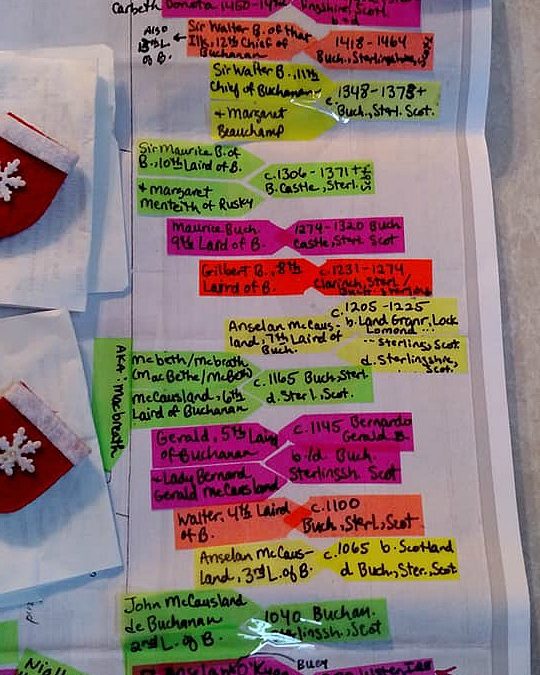 Carbeth Donota 1460-147
lingshire, Scotl.
b+d
Also
13th L
of B.
Sir Walter B. of that
Ilk, 12th Chief of
Buchanan
1418-1464
Buch., Sterlingshire,
Sir Walter B., 11th
Chief of Buchanan
+ Margaret
Beauchamp
c. 1348-1373+
Buch., Sterl. Scot.
Sir Maurice B. of
B., 10th Laird of B.
+ margaret
Menteith of Rusky
c. 1306-1371+
B. Castle, Sterl.
Maurice Buch.
9th Laird of B.
1274-1320 Buch
Castle, Sterl. Scot
Gilbert B., 8th
Laird of B.
c. 1231-1274
Clarinch, Sterl/
Buch. Sterling
Anselan McCaus-
land, 7th Laird of
Buch.
c. 1205-1225
b. Land Granr, Lock
Lomond ...
Sterling, Scot
d. Sterlingshire,
Scot.
AKA: Macbreath
Mcbeth/mcbrath
(MacBethe/McBeth)
McCausland, 6th
Laird of Buchanan
c. 1165 Buch, Sterl
d. Sterl, Scot.
Gerald, 5th Laird
of Buchanan
+ Lady Bernard
Gerald McCausland
c. 1145 Bernardo
Gerald B.
b/d Buch.
Sterlingsh. Scot
Walter, 4th Laird
of B.
c. 1100
Buch., Sterl., Scot.
Anselan McCaus-
land, 3rd L. of B.
c. 1065 b. Scotland
d Buch., Ster., Scot
John McCausland
de Buchanan
2nd L. of B.
1040 Buchan.
Sterlingsh., Scot
Niall
Anselan O'Kyan
Buey